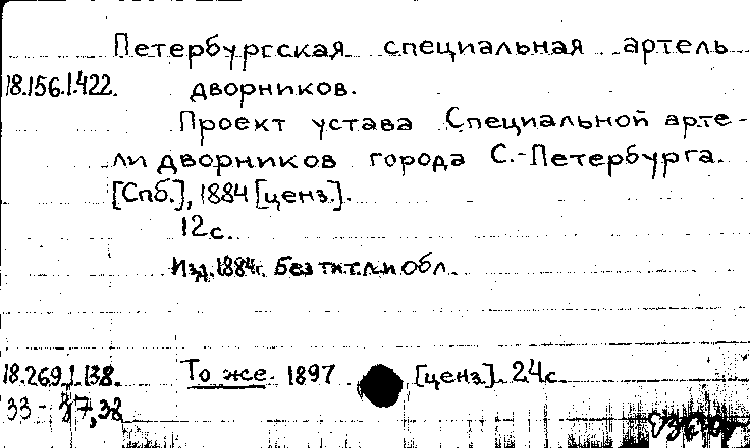 Петербургская специальная артель
18.156.1.422. дворников.
Проект устава Специальной арте-
ли дворников города С.-Петербурга.
[Спб.], 1884 [ценз.].
12 с.
Изд. 1884г. Без тит. л. и обл.
18.269.1.138. То же. 1897 [ценз]. 24с.
33 - 37,38